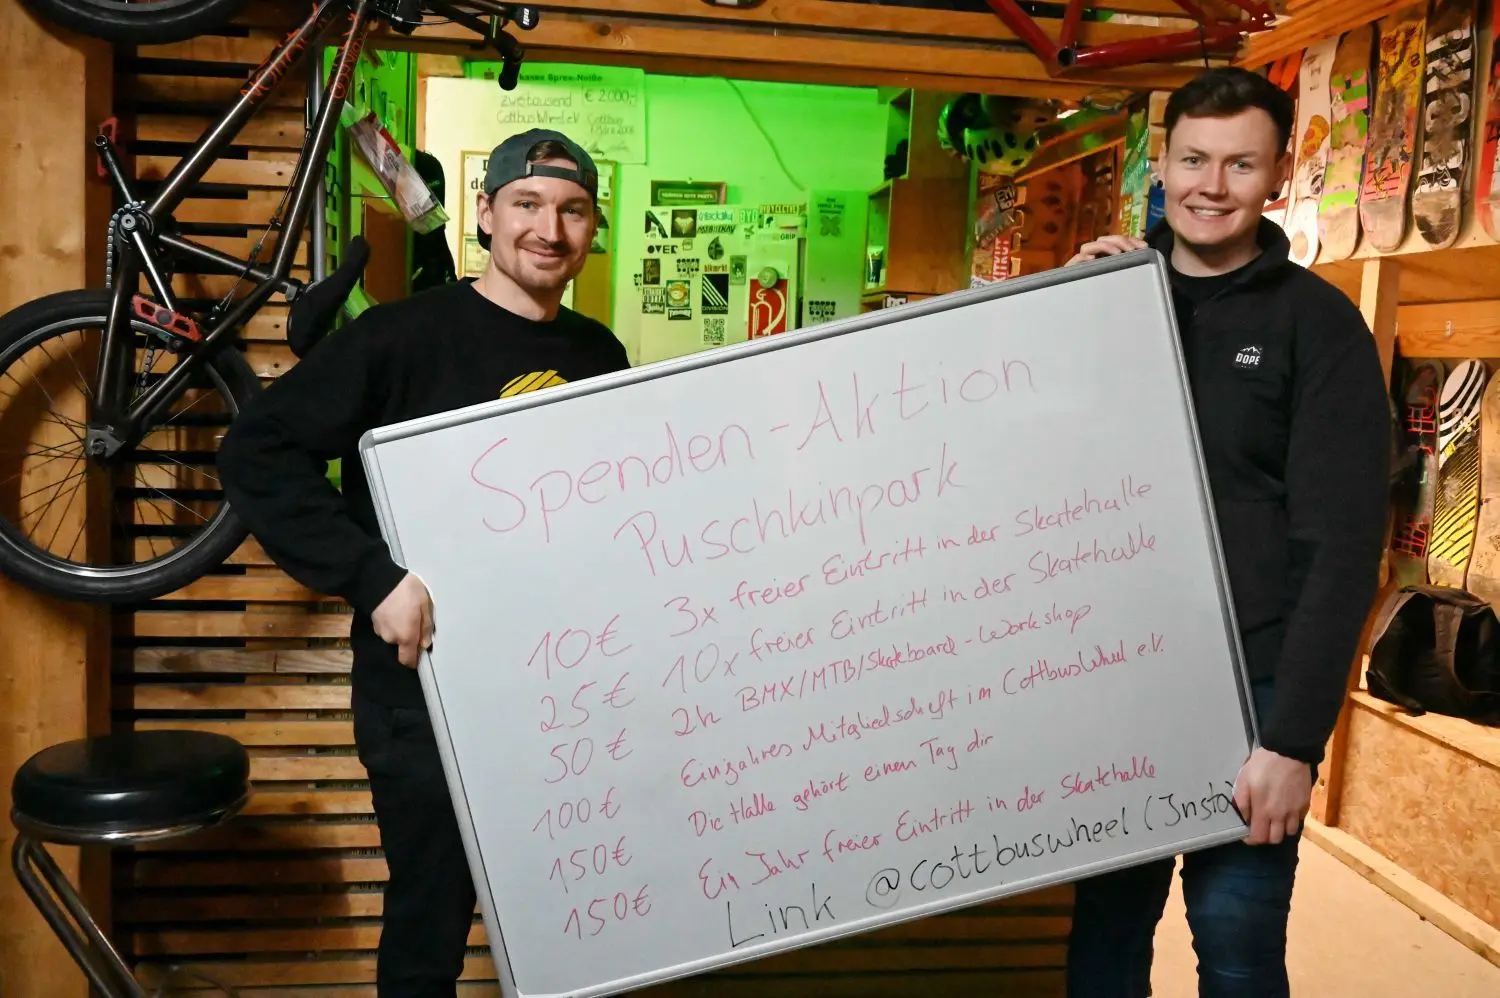 kasse Spree-Neiße
€ 2.000,-
zweitausend
Cottbus Wheel e.V.
Cottbus
OVER
GRIP
DIVISION
DOPE
Spenden-Aktion
Puschkinpark
10€ 3x freier Eintritt in der Skatehalle
25€ 10x freier Eintritt in der Skatehalle
50€ 2h BMX/MTB/Skateboard-Workshop
100€ Einjahres Mitgliedschaft im CottbusWheel e.V.
150€ Die Halle gehört einen Tag dir
150€ Ein Jahr freier Eintritt in der Skatehalle
Link @cottbuswheel (Insta)